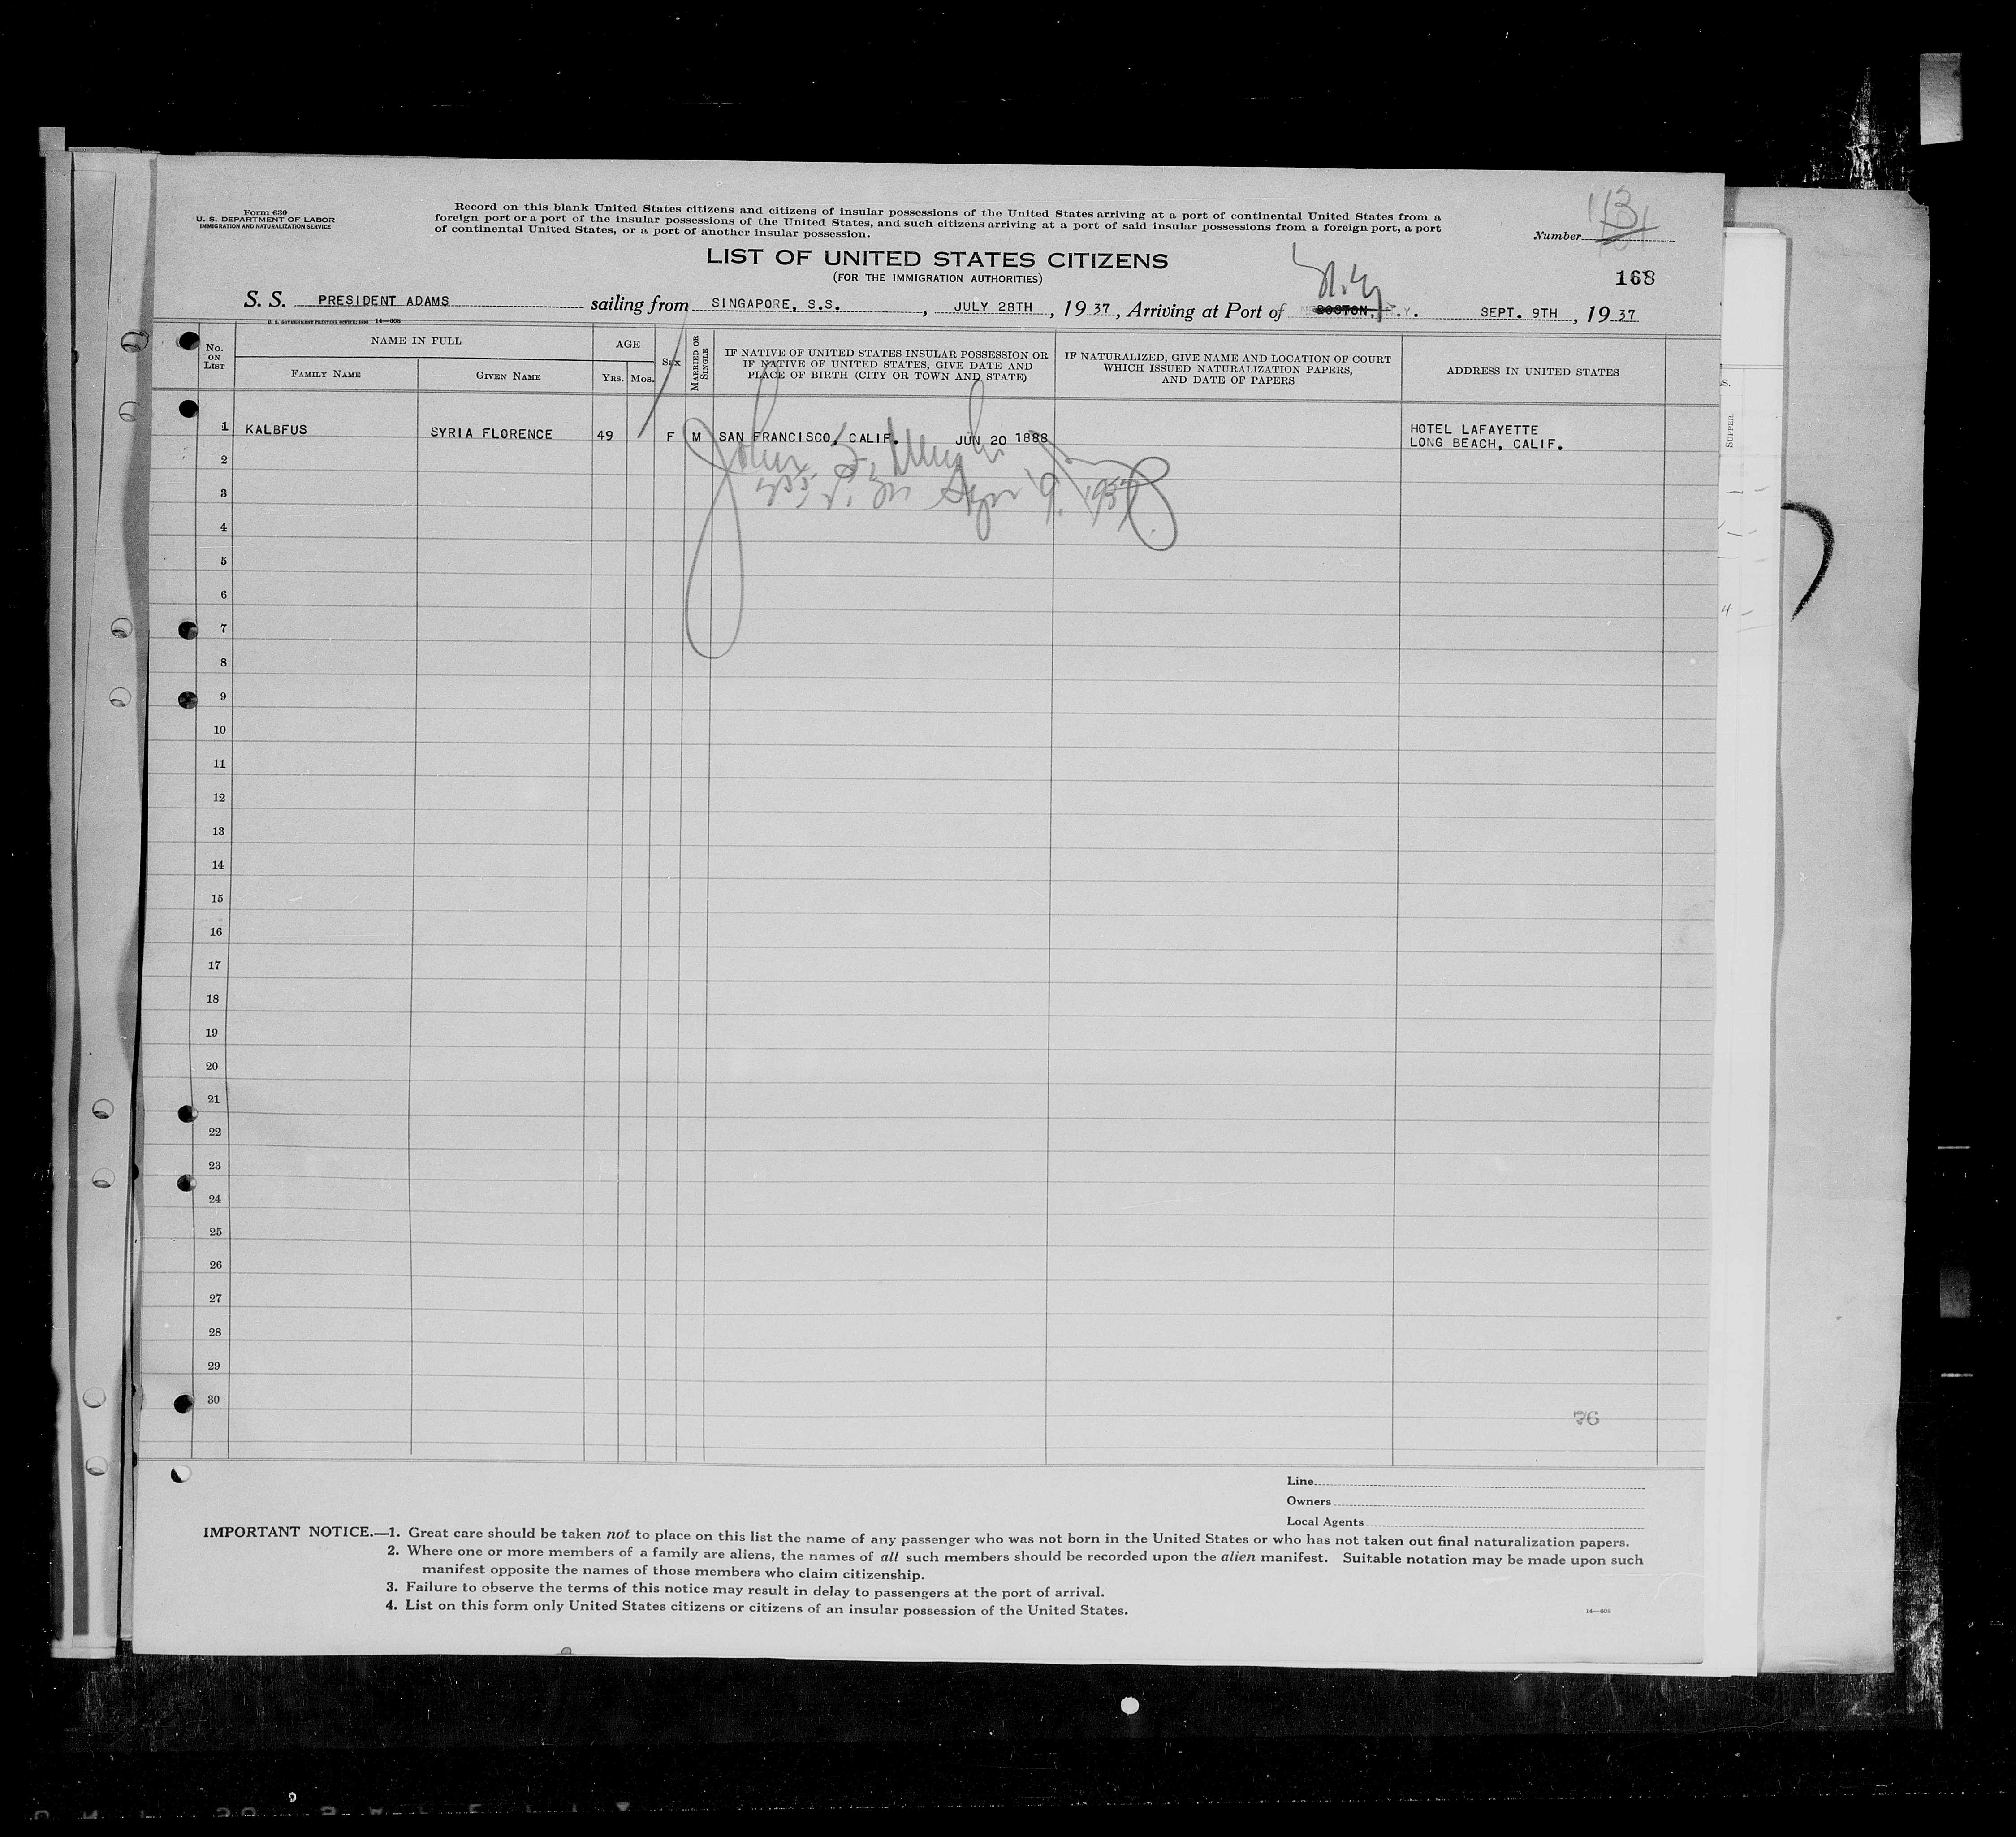 Form 630
U. S. DEPARTMENT OF LABOR
IMMIGRATION AND NATURALIZATION SERVICE
Record on this blank United States citizens and citizens of insular possessions of the United States arriving at a port of continental United States from a
foreign port or a port of the insular possessions of the United States, and such citizens arriving at a port of said insular possessions from a foreign port, a port
of continental United States, or a port of another insular possession.
Number
LIST OF UNITED STATES CITIZENS
(FOR THE IMMIGRATION AUTHORITIES)
168
N.Y.
S. S. PRESIDENT ADAMS sailing from SINGAPORE, S.S., JULY 28TH, 1937, Arriving at Port of BOSTON, SEPT. 9TH, 1937
U. S. GOVERNMENT PRINTING OFFICE: 14—608
No. ON LIST
NAME IN FULL
FAMILY NAME
GIVEN NAME
AGE
YRS. MOS.
SEX
MARRIED OR SINGLE
IF NATIVE OF UNITED STATES INSULAR POSSESSION OR
IF NATIVE OF UNITED STATES, GIVE DATE AND
PLACE OF BIRTH (CITY OR TOWN AND STATE)
IF NATURALIZED, GIVE NAME AND LOCATION OF COURT
WHICH ISSUED NATURALIZATION PAPERS,
AND DATE OF PAPERS
ADDRESS IN UNITED STATES
SUPPER.
1 KALBFUS SYRIA FLORENCE 49 F M SAN FRANCISCO, CALIF. JUN 20 1888 HOTEL LAFAYETTE
LONG BEACH, CALIF.
John
9, 1937
2
3
4
5
6
7
8
9
10
11
12
13
14
15
16
17
18
19
20
21
22
23
24
25
26
27
28
29
30
76
Line
Owners
Local Agents
IMPORTANT NOTICE.—1. Great care should be taken not to place on this list the name of any passenger who was not born in the United States or who has not taken out final naturalization papers.
2. Where one or more members of a family are aliens, the names of all such members should be recorded upon the alien manifest. Suitable notation may be made upon such
manifest opposite the names of those members who claim citizenship.
3. Failure to observe the terms of this notice may result in delay to passengers at the port of arrival.
4. List on this form only United States citizens or citizens of an insular possession of the United States.
14—608